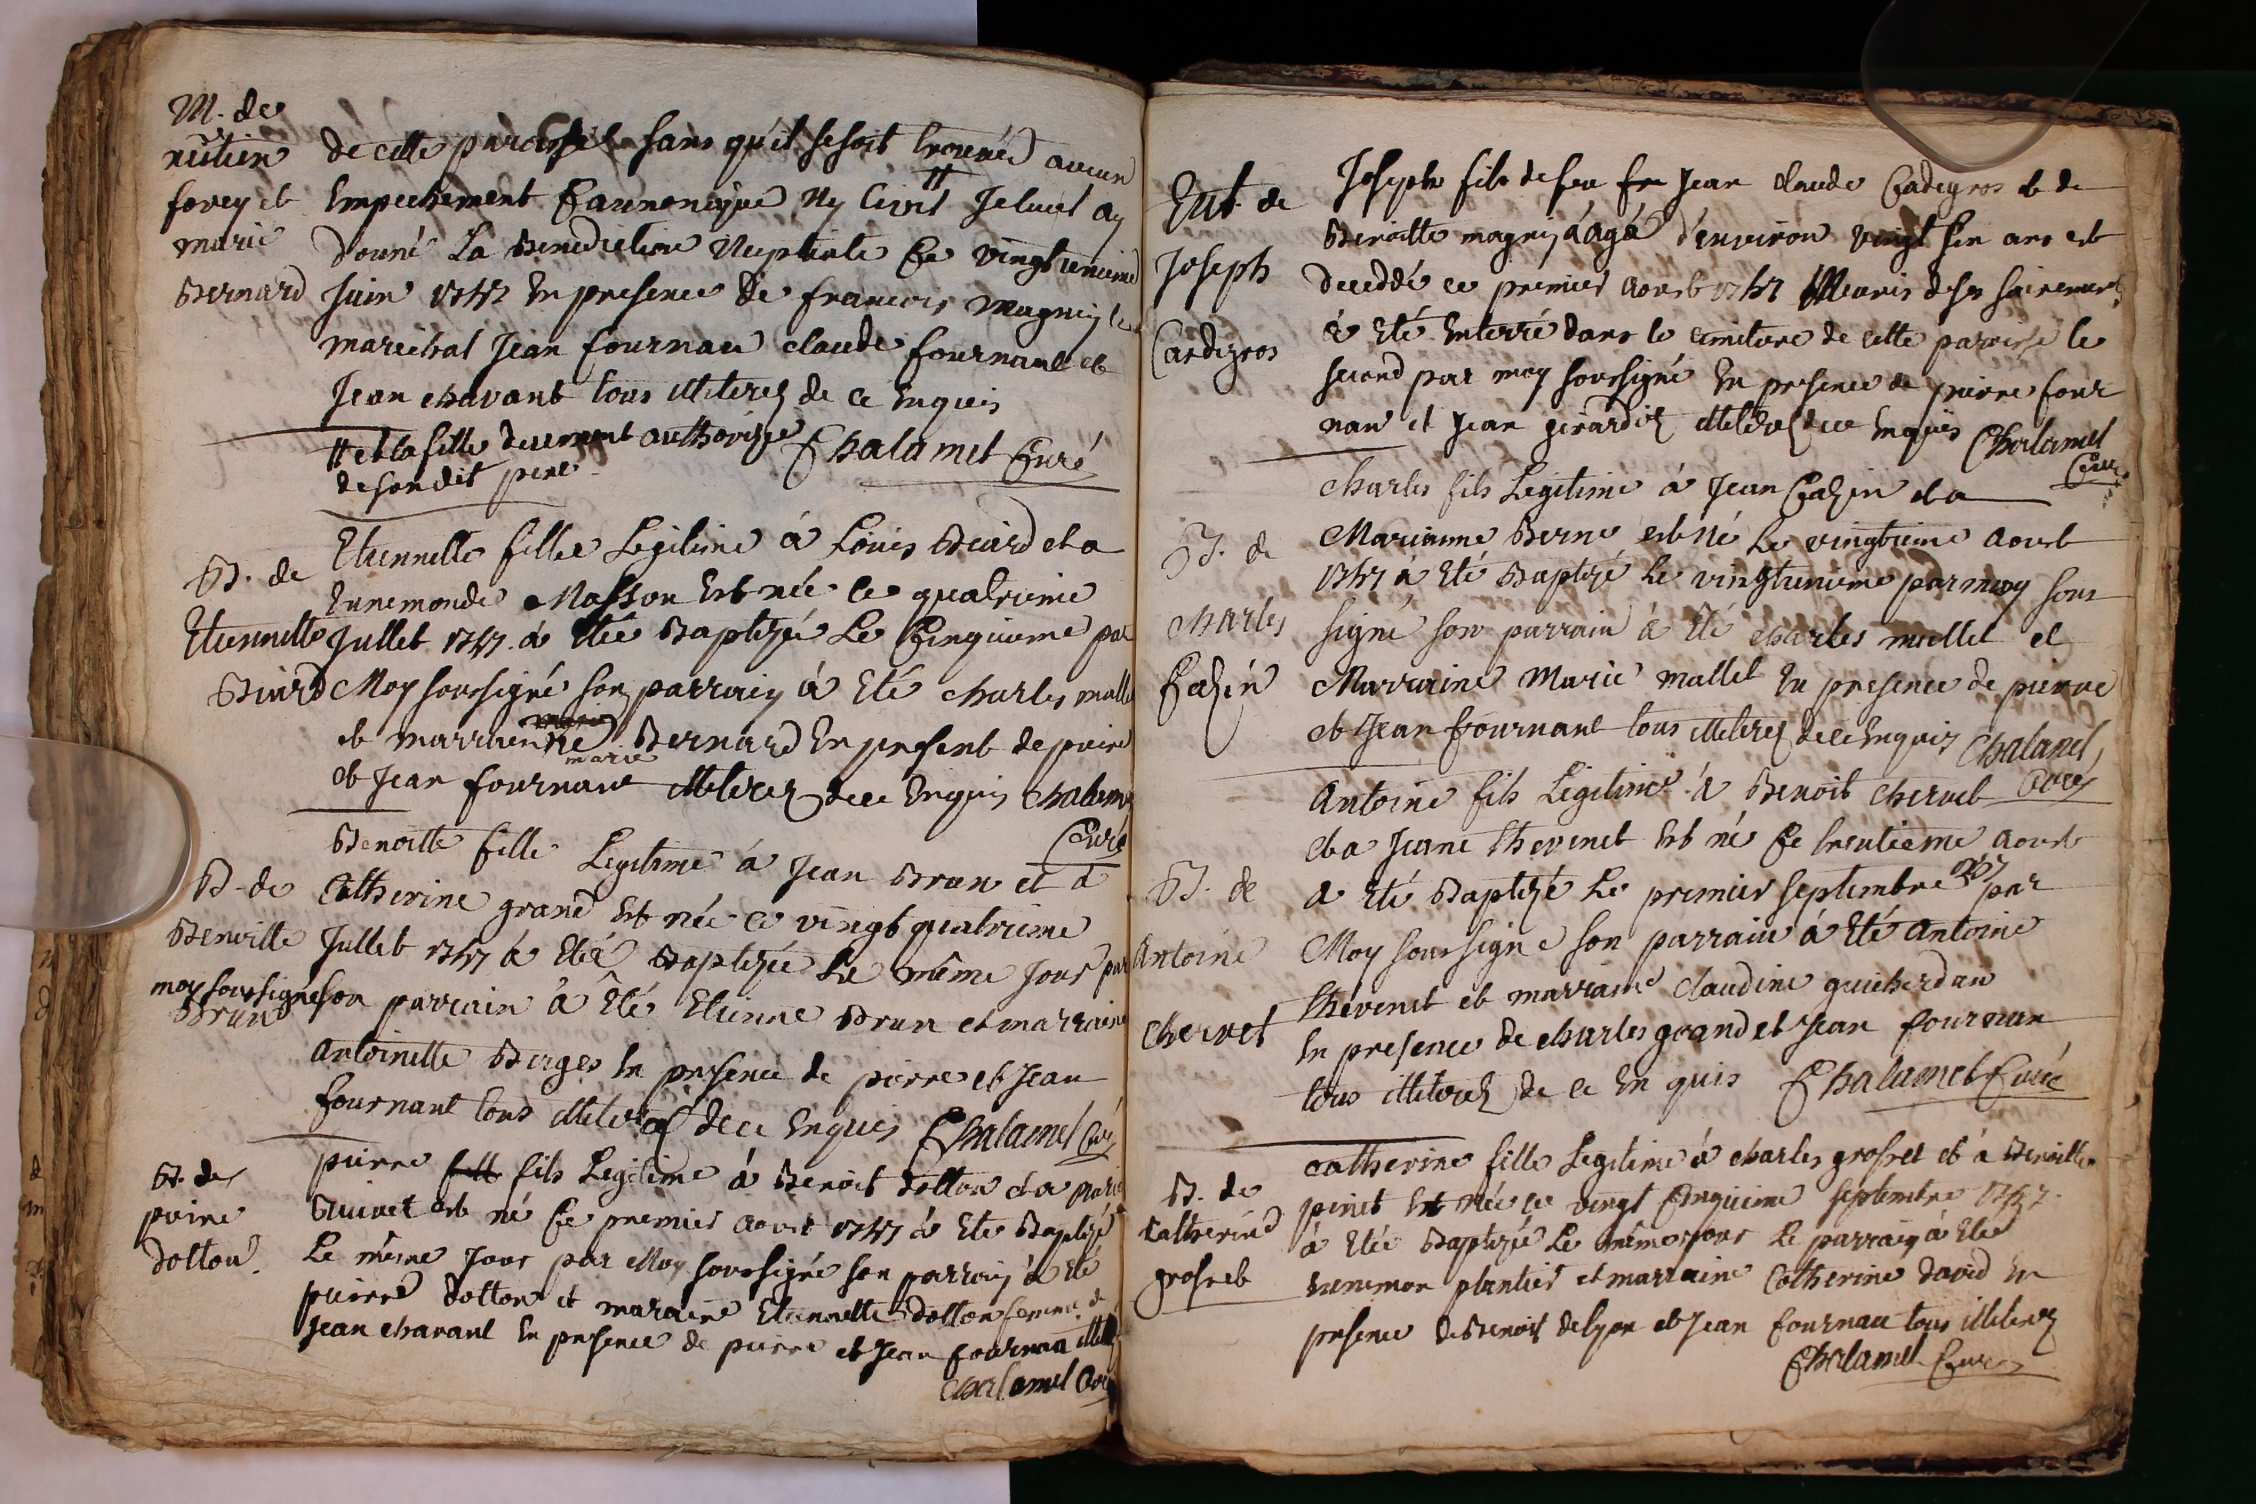 M. de
forey et
marie
Bernard
de cette paroisse sans qu'il se soit trouvé aucun
Empechement Cannonique Ny Civil # Je leur ay
donné La Benediction Nuptiale Ce vingtunieme
Juin 1747 En presence De francois magnin le
marechal Jean fournan claude fournant et
Jean chavant tous illiterez de ce Enquis
# et la fille deuement authorisée
de son dit pere
Chalamel Curé
B. de
Etiennette
Biard
Etiennette fille Legitime á Louis Biard et a
Ennemonde Masson Est née le quatrieme
Jullet 1747 á Etée Baptizée Le Cinquieme par
Moy soussigné son parrain á Eté charles malle
et marraine marie Bernard En present de pierre
et Jean fournant illiterez de ce Enquis Chalamel
Curé
B. de
Benoitte
Brun
Benoitte fille Legitime á Jean Brun et á
Catherine grand Est née ce vingt quatrieme
Jullet 1747 á Etée Baptizée Le même Jour par
moy soussigné son parrain á Eté Etienne Brun et marraine
Antoinette Berger En presence de pierre et Jean
fournant tous illiterez de ce Enquis Chalamel Curé
B. de
pierre
dolton
pierre fils Legitime á Benoit dolton et a Marie
Buivet est né Ce premier Aoust 1747 á Eté Baptizé
Le même Jour par Moy soussigné son parrain á Eté
pierre dolton et maraine Etiennette dolton femme de
Jean chavant En presence de pierre et Jean fournan illit
Chalamel Curé
Ent. de
Joseph
Cardegros
Joseph fils de feu Jean claude Cadegros et de
Benoitte magnin áagé d'environ vingt sin ans est
deceddé ce premier Aoust 1747 Munis de ses sairements
á Eté Enterré dans le cimitiere de cette paroisse le
second par moy soussigné En presence de pierre four
nan et Jean girardiz illiterez de ce Enquis Chalamel
Curé
B. de
charles
Cazin
charles fils Legitime á Jean Cazin et a
Marianne Berne est Né Le vingtieme Aoust
1747 á Eté Baptizé Le vingtunieme par moy sous
signé son parrain á Eté charles mallet et
Marraine Marie mallet En presence de pierre
et Jean fournant tous illiterez de ce Enquis Chalamel
Curé
B. de
Antoine
Chervet
Antoine fils Legitime á Benoit chervet
et a Jeane thevenet Est né Ce trentieme Aoust
a Eté Baptizé Le premier septembre 1747 par
Moy soussigne son parrain á Eté Antoine
thevenet et marraine Claudine guicherdan
En presence de charles grand et Jean fournan
tous illiterez de ce En quis Chalamel Curé
B. de
Catherine
grosset
catherine fille Legitime á charles grosset et á Benoitte
pinet Est née ce vingt Cinquieme septembre 1747
á Etée Baptizée Le même Jour Le parrain á Eté
Ennemon plantier et marraine Catherine david En
presence de Benoit delyon et Jean fournan tous illiterez
Chalamel Curé